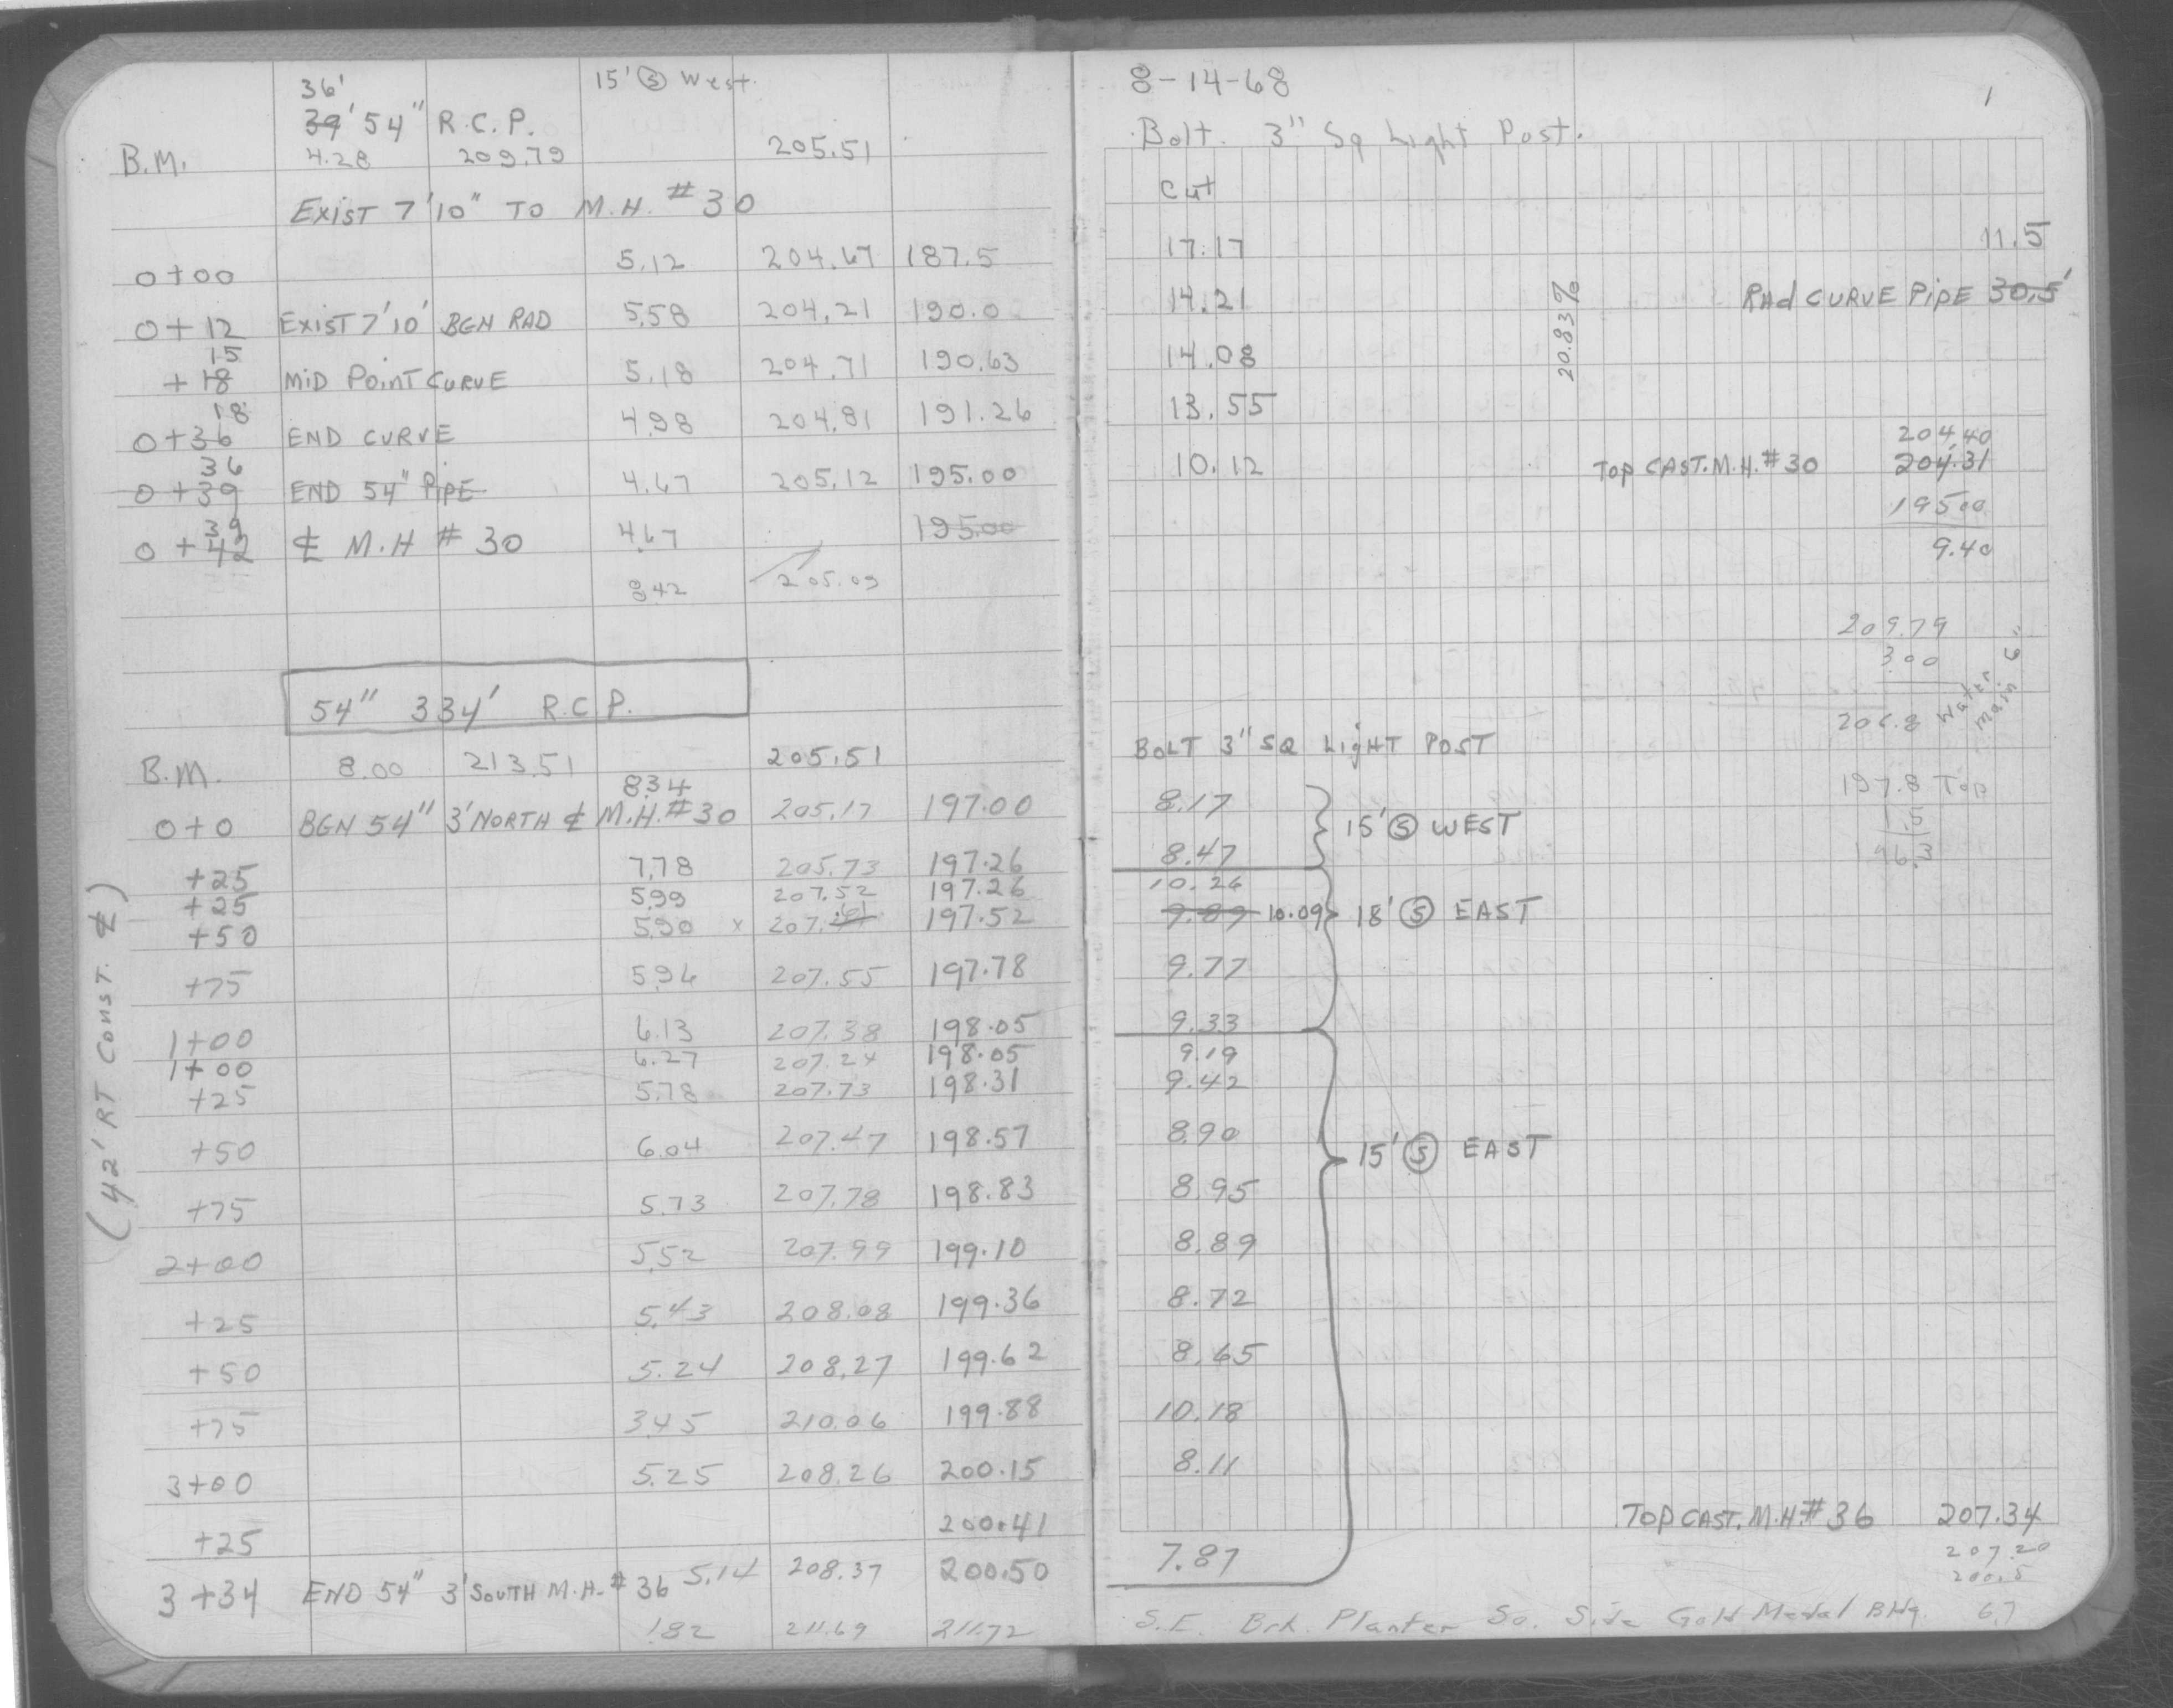 36' 15' Ⓢ West.
39' 54" R.C.P.
B.M. 4.28 209.79 205.51
EXIST 7'10" TO M.H. #30
0+00 5.12 204.67 187.5
0+12 EXIST 7'10' BGN RAD 5.58 204.21 190.0
15
+18 MID POINT CURVE 5.18 204.71 190.63
18
0+36 END CURVE 4.98 204.81 191.26
36
0+39 END 54" PIPE 4.67 205.12 195.00
39
0+42 ₵ M.H #30 4.67 195.00
8.42 205.09
54" 334' R.C.P.
B.M. 8.00 213.51 205.51
8.34
0+0 BGN 54" 3' NORTH ₵ M.H.#30 205.17 197.00
+25 7.78 205.73 197.26
+25 5.99 207.52 197.26
+50 5.90 x 207.61 197.52
+75 5.96 207.55 197.78
1+00 6.13 207.38 198.05
1+00 6.27 207.24 198.05
+25 5.78 207.73 198.31
+50 6.04 207.47 198.57
+75 5.73 207.78 198.83
2+00 5.52 207.99 199.10
+25 5.43 208.08 199.36
+50 5.24 208.27 199.62
+75 3.45 210.06 199.88
3+00 5.25 208.26 200.15
+25 200.41
3+34 END 54" 3' SOUTH M.H.#36 5.14 208.37 200.50
1.82 211.69 211.72
(42' RT CONST. ₵)
8-14-68
1
Bolt. 3" Sq Light Post.
Cut
17.17 11.5
14.21 RAd CURVE PIPE 30.5'
20.83%
14.08
13.55
204.40
10.12 TOP CAST. M.H.#30 204.31
195.00
9.40
209.79
3.00
206.8 Water Main 6"
BOLT 3" SQ LIGHT POST
197.8 Top
8.17
1.5
15' Ⓢ WEST
8.47 196.3
10.26
9.89 10.09 18' Ⓢ EAST
9.77
9.33
9.19
9.42
8.90
15' Ⓢ EAST
8.95
8.89
8.72
8.65
10.18
8.11
TOP CAST. M.H.#36 207.34
7.87 207.20
200.5
S.E. Brk. Planter So. Side Gold Medal Bldg. 6.7